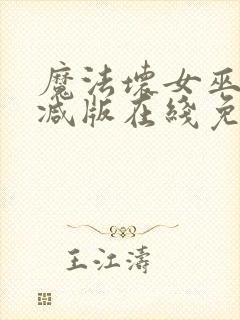 魔法坏女巫
减版在线免
王江涛